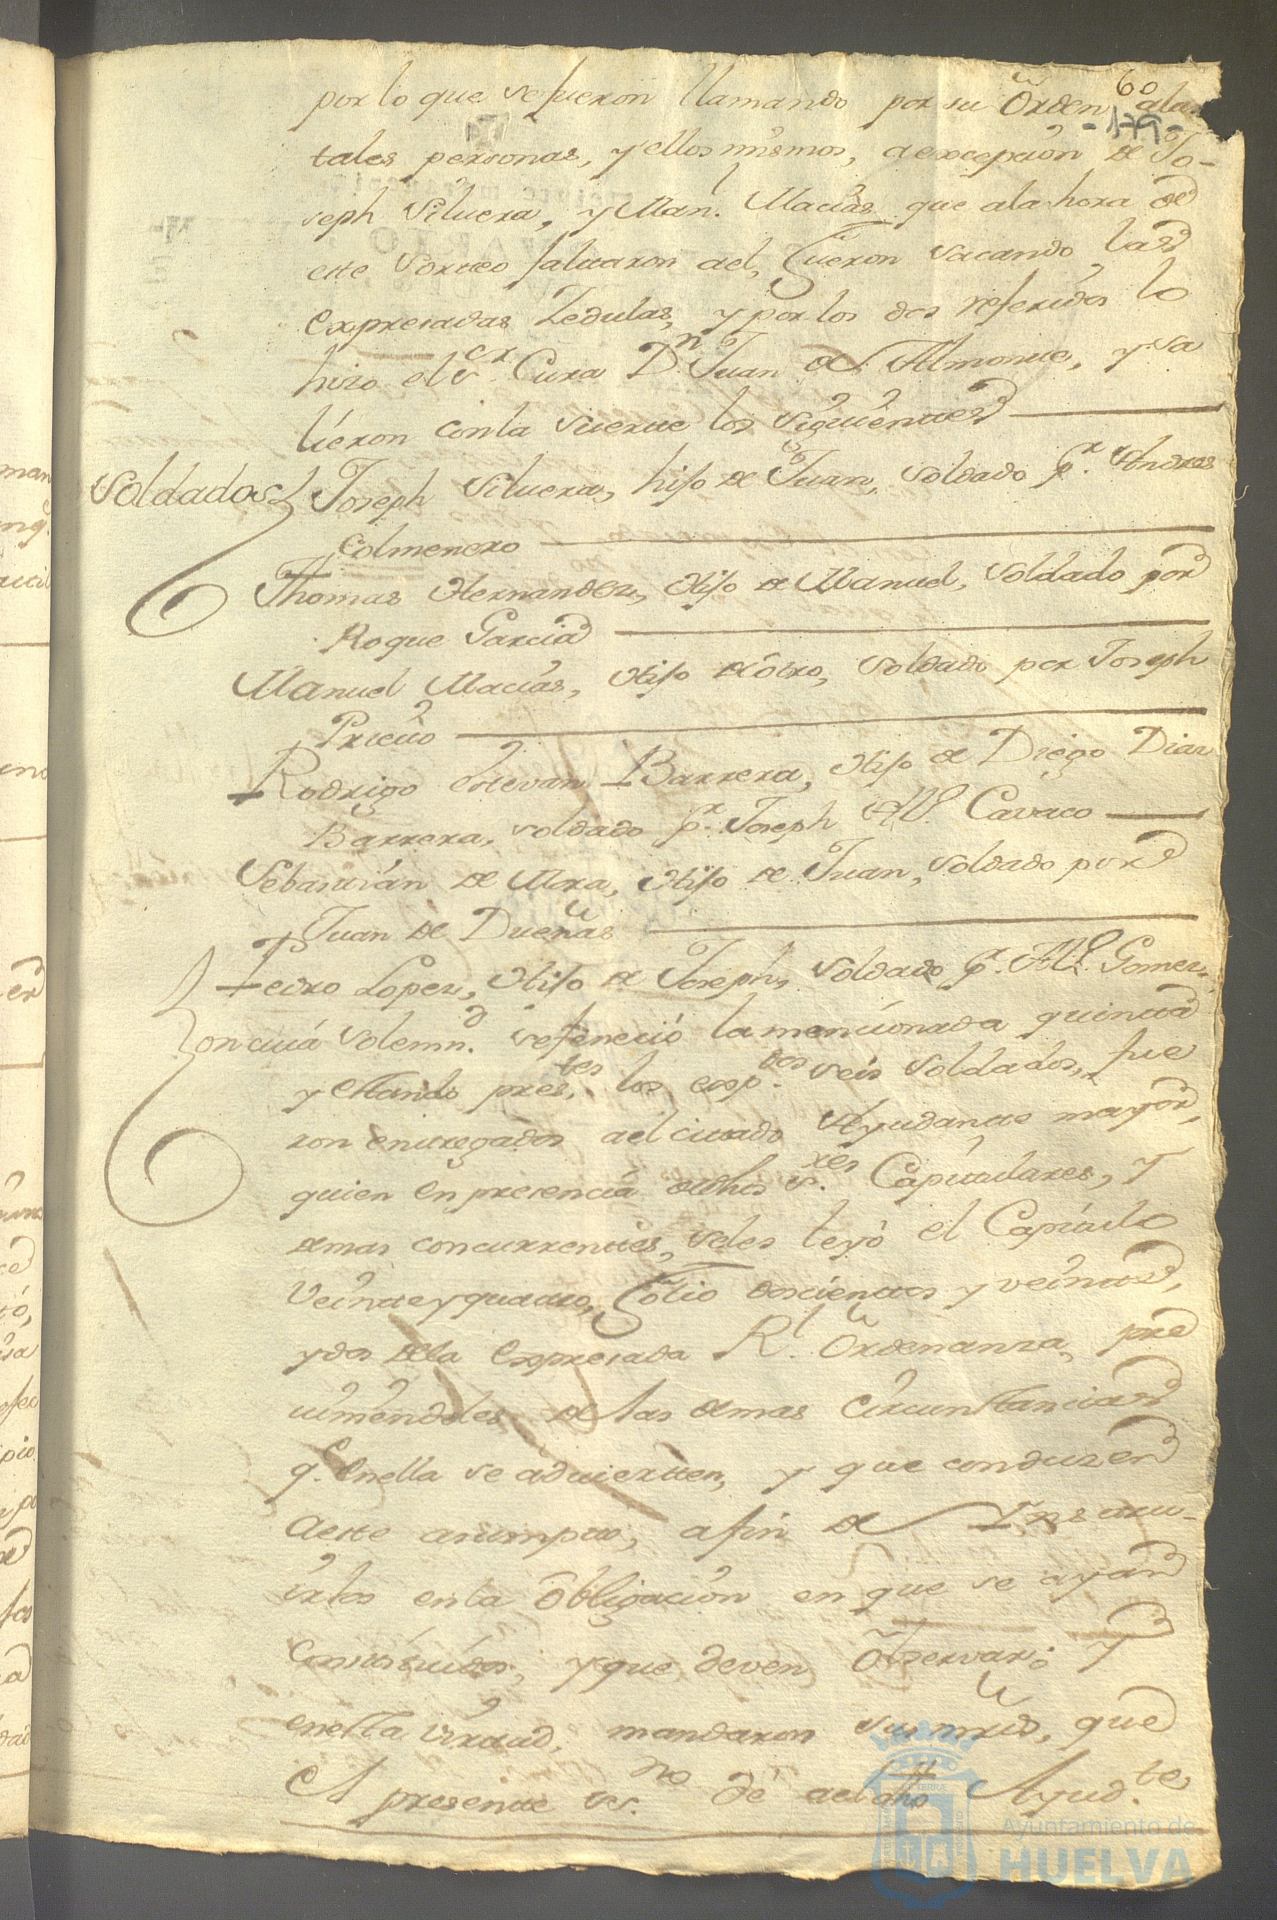 60
-179-
por lo que se fueron llamando por su Orden, a las
tales personas, y ellos mismos, a excepcion de Jo-
seph Silvera, y Man.l Macias que ala hora de
este Sorteo faltaron del, fueron sacando las
expresadas Zedulas, y por los dos referidos lo
hizo el s.or Cura D.n Juan de Almonte, y sa
lieron con la suerte los siguientes
Soldados
Joseph Silvera, hijo de Juan, soldado p.r Andres
Colmenero
Thomas Hernandez, Hijo de Manuel, soldado por
Roque Garcia
Manuel Macias, Hijo de otro, soldado por Joseph
Prieto
Rodrigo Estevan Barrera, Hijo de Diego Diaz
Barrera, soldado p.r Joseph Al.o Cavaco
Sebastián de Mora, Hijo de Juan, soldado por
Juan de Dueñas
Pedro Lopez, Hijo de Joseph, soldado p.r Al.o Gomez
con cuia solemn.d se feneció la mencionada quinta
y estando pres.tes los exp.dos seis soldados, fue
ron entregados a el citado Ayudante mayor,
quien en presencia de dhos s.res Capitulares, y
demas concurrentes, se les leyó el Capitulo
Veinte y quatro, folio doscientos y veinte,
y dos de la expresada R.l Ordenanza, pre
viniendoles de las demas Circunstancias
q.e en ella se advierten, y que conduzen
a este asumpto, a fin de Instru-
irlos en la Obligacion en que se ayan
constituidos, y que deven Observar: Y
en esta virtud, mandaron sus mrds, que
el presente es.no dé a el dho Ayud.te
Ayuntamiento de
HUELVA